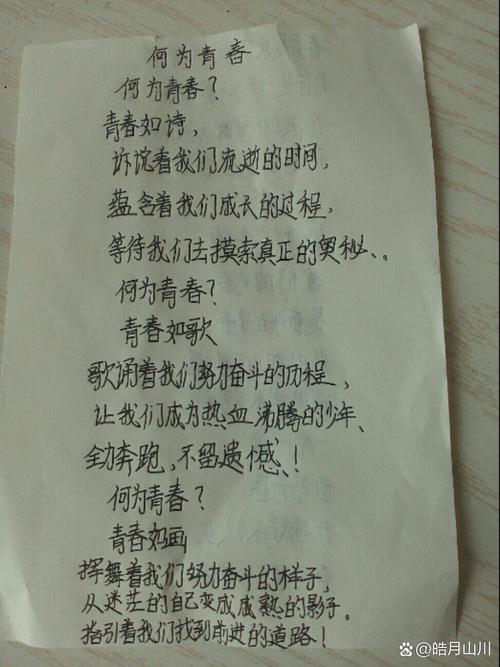 何为青春
何为青春？
青春如诗，
诉说着我们流逝的时间，
蕴含着我们成长的过程，
等待我们去摸索真正的奥秘、。
何为青春？
青春如歌
歌诵着我们努力奋斗的历程、
让我们成为热血沸腾的少年、
全力奔跑，不留遗憾、！
何为青春？
青春如画
挥舞着我们努力奋斗的样子，
从迷茫的自己变成成熟的影子。
指引着我们找到前进的道路！
@皓月山川